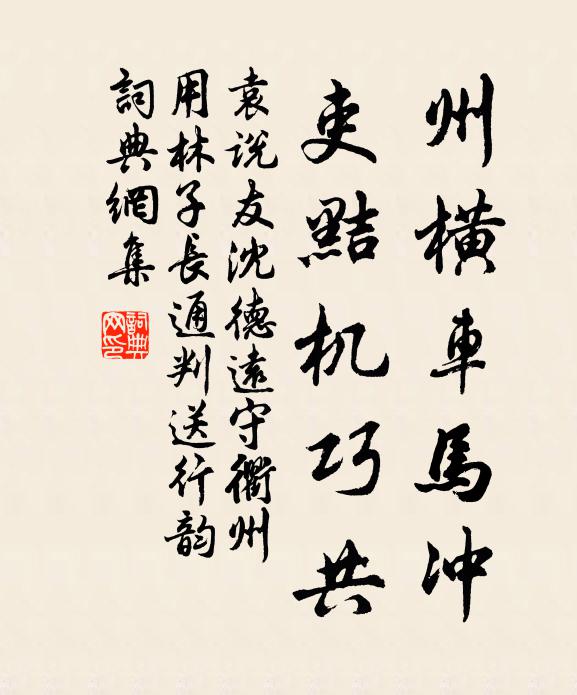 州橫車馬冲
吏黠机巧共
袁说友沈德遠守衢州
用林子長通判送行韵
詞典網集
詞典网印